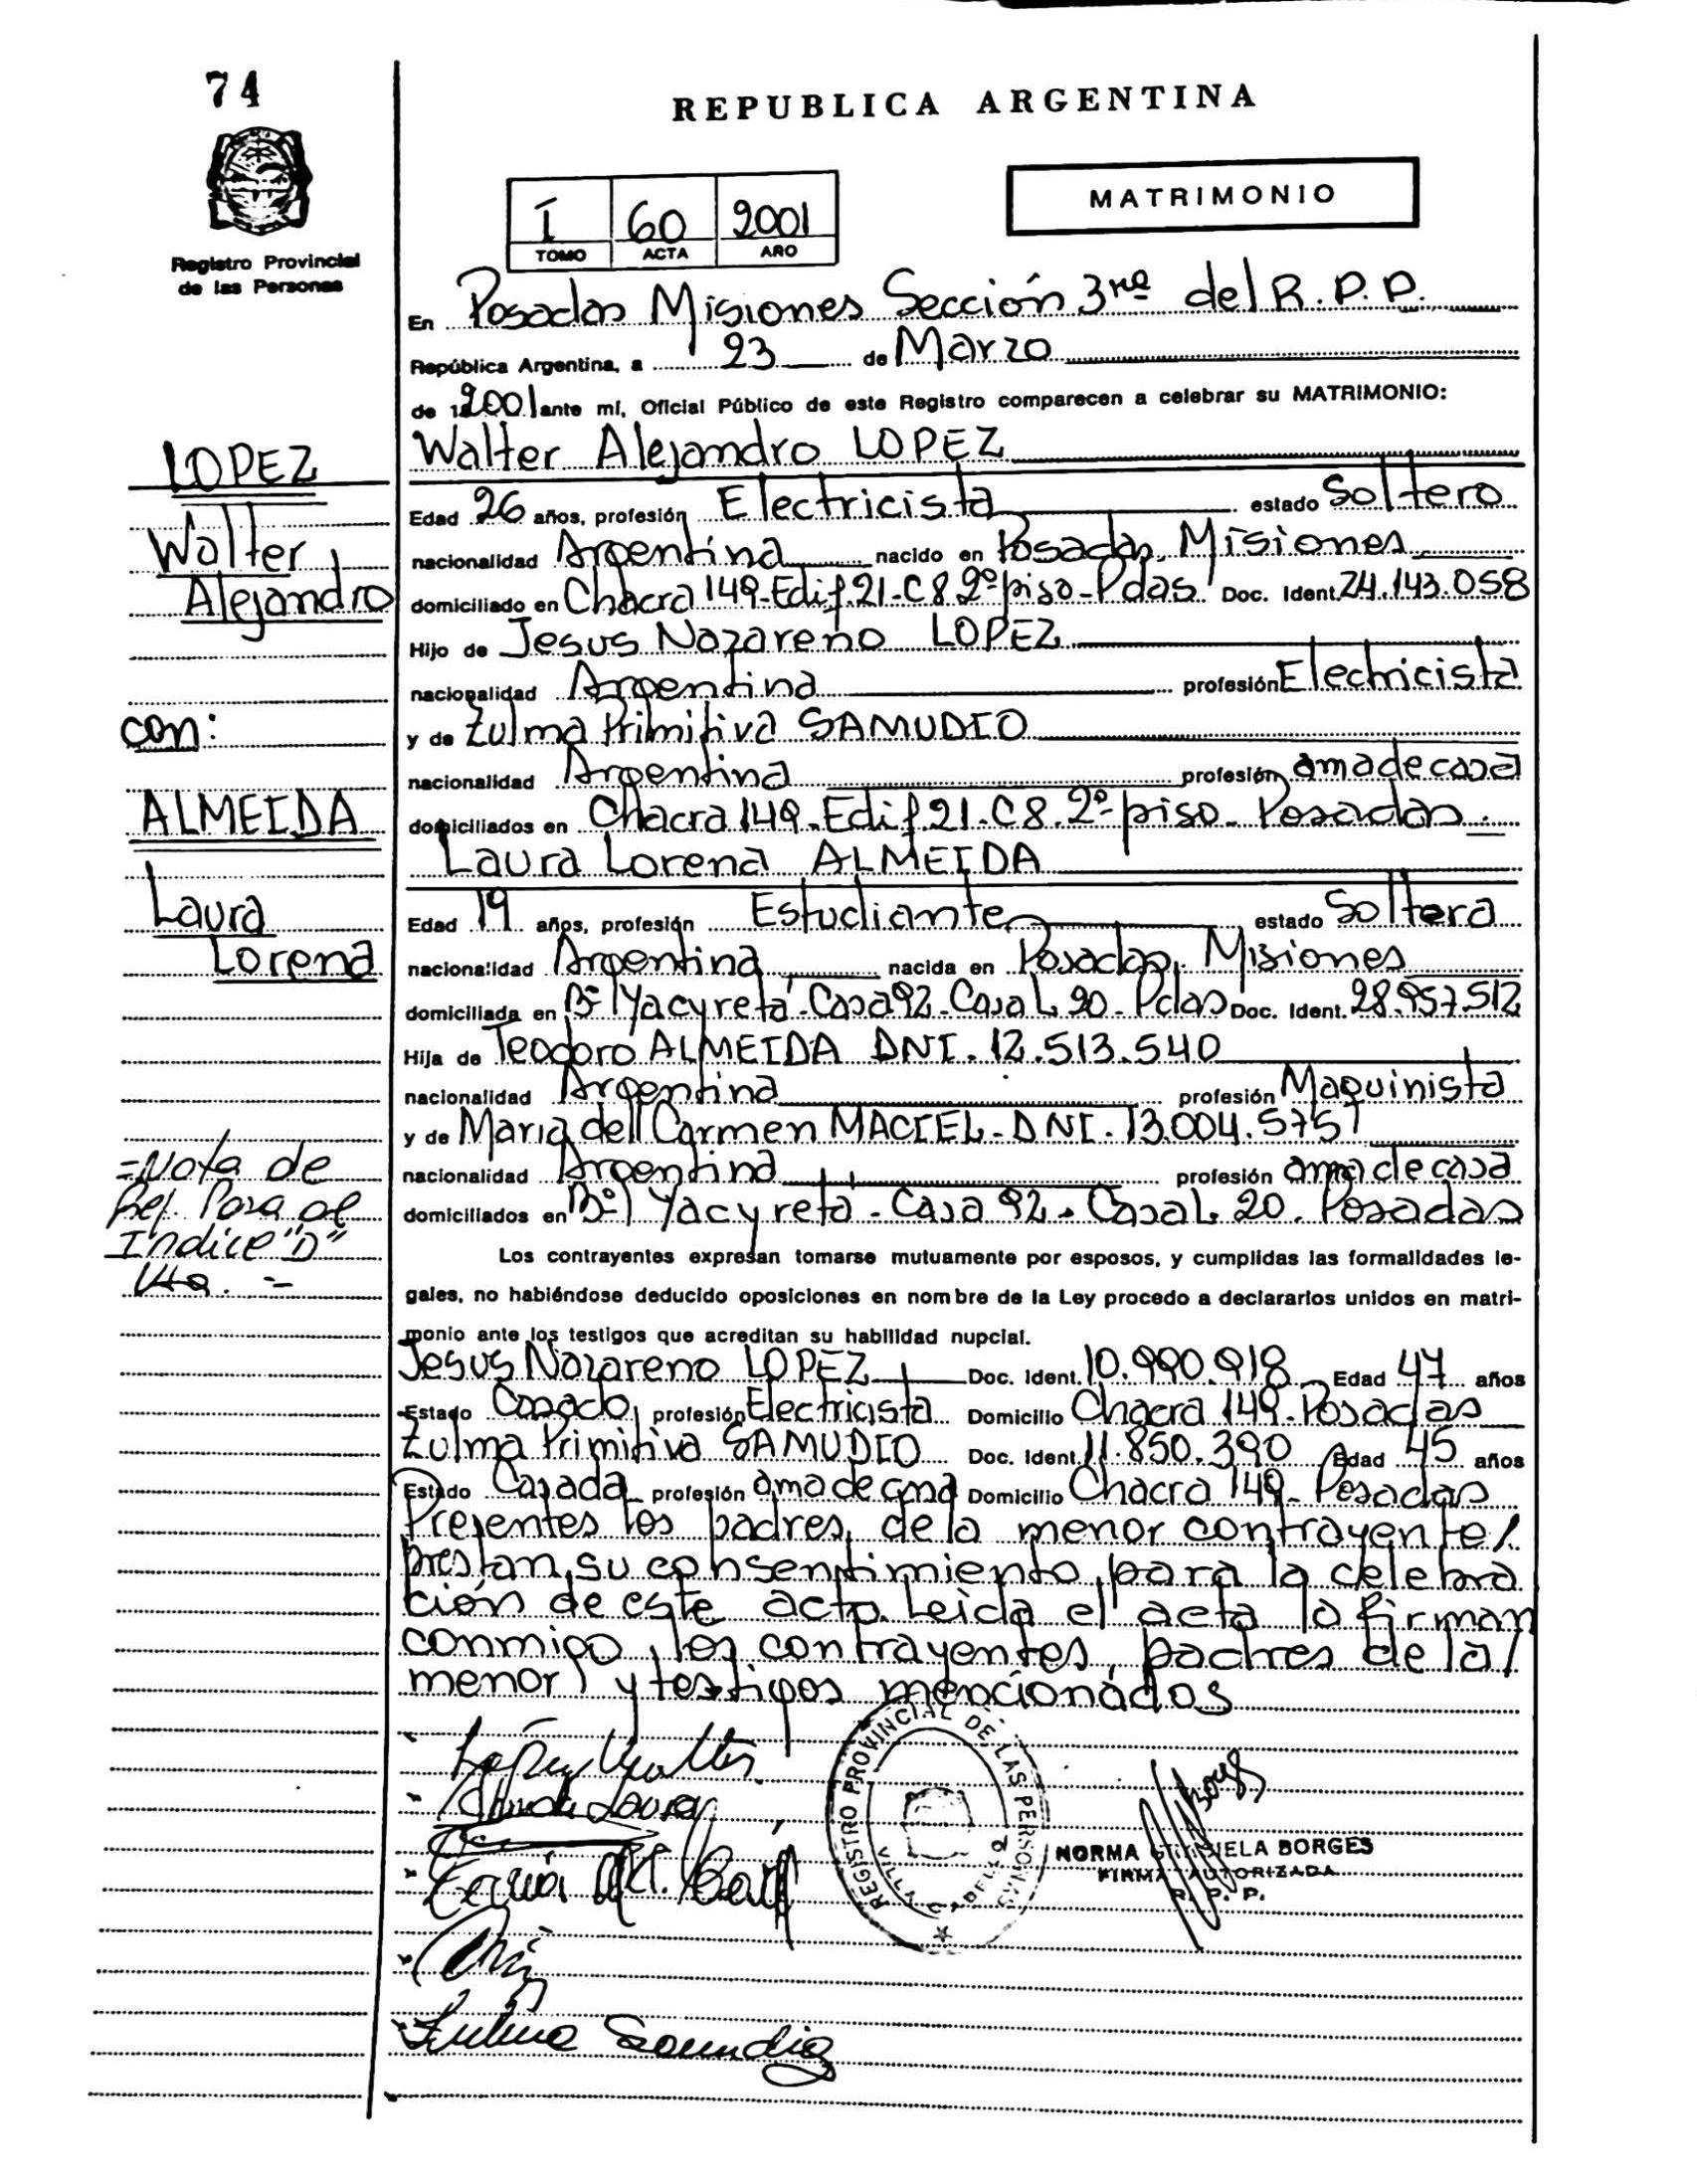 74
REPUBLICA ARGENTINA
MATRIMONIO
I 60 2001
TOMO ACTA AÑO
Registro Provincial
de las Personas
En Posadas Misiones Sección 3ra del R.P.P.
República Argentina, a 23 de Marzo
de 1 2001 ante mí, Oficial Público de este Registro comparecen a celebrar su MATRIMONIO:
LOPEZ
Walter
Alejandro
Walter Alejandro LOPEZ
Edad 26 años, profesión Electricista estado Soltero
nacionalidad Argentina nacido en Posadas, Misiones
domiciliado en Chacra 149-Edif.21-C8 2º piso-Pdas. Doc. Ident. 24.143.058
Hijo de Jesus Nazareno LOPEZ
nacionalidad Argentina profesión Electricista
con:
y de Zulma Primitiva SAMUDIO
nacionalidad Argentina profesión ama de casa
ALMEIDA
domiciliados en Chacra 149-Edif.21-C8.2º piso-Posadas.
Laura
Lorena
Laura Lorena ALMEIDA
Edad 19 años, profesión Estudiante estado Soltera
nacionalidad Argentina nacida en Posadas, Misiones
domiciliada en Bº Yacyreta-Casa 92-Casa L 20-Pdas Doc. Ident. 28.957.512
Hija de Teodoro ALMEIDA DNI. 12.513.540
nacionalidad Argentina profesión Maquinista
y de Maria del Carmen MACIEL-DNI. 13.004.575
nacionalidad Argentina profesión ama de casa
domiciliados en Bº Yacyreta-Casa 92-Casa L 20. Posadas
=Nota de
Ref. Para el
Indice "D"
Vta. =
Los contrayentes expresan tomarse mutuamente por esposos, y cumplidas las formalidades le-
gales, no habiéndose deducido oposiciones en nombre de la Ley procedo a declararlos unidos en matri-
monio ante los testigos que acreditan su habilidad nupcial.
Jesus Nazareno LOPEZ Doc. Ident. 10.990.918 Edad 47 años
Estado Casado profesión Electricista Domicilio Chacra 149-Posadas
Zulma Primitiva SAMUDIO Doc. Ident. 11.850.390 Edad 45 años
Estado Casada profesión ama de casa Domicilio Chacra 149-Posadas
Presentes los padres de la menor contrayente/
prestan su consentimiento para la celebra
ción de este acto. Leida el acta la firman
conmigo, los contrayentes, padres de la/
menor y testigos mencionados
Lopez Walter
Laura
REGISTRO PROVINCIAL DE LAS PERSONAS
VILLA CABELLO
NORMA BORGES
FIRMA AUTORIZADA
R. P. P.
Zulma Samudio